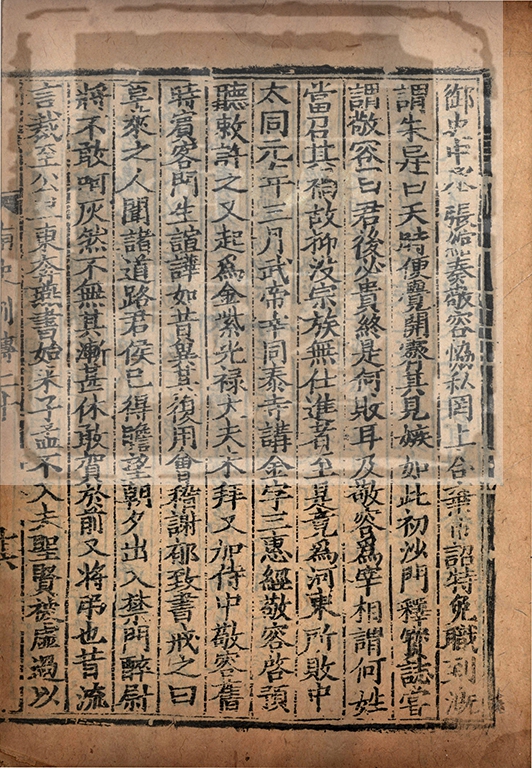 御史中丞張綰奏敬容協私罔上合棄市詔特免職到漑
謂朱异曰天時便覺開霽其見嫉如此初沙門釋寶誌嘗
謂敬容曰君後必貴終是何敗耳及敬容為宰相謂何姓
當召其禍故抑没宗族無仕進者至是竟為河東所敗中
太同元年三月武帝幸同泰寺講金字三惠經敬容啓預
聽敕許之又起為金紫光禄大夫未拜又加侍中敬容舊
時賓客門生諠譁如昔冀其復用會稽謝郁致書戒之曰
草萊之人聞諸道路君侯已得瞻望朝夕出入禁門醉尉
將不敢呵灰然不無其漸甚休敢賀於前又將弔也昔流
言裁至公旦東奔燕書始来子孟不入夫聖賢被虚過以
南史列傳二十